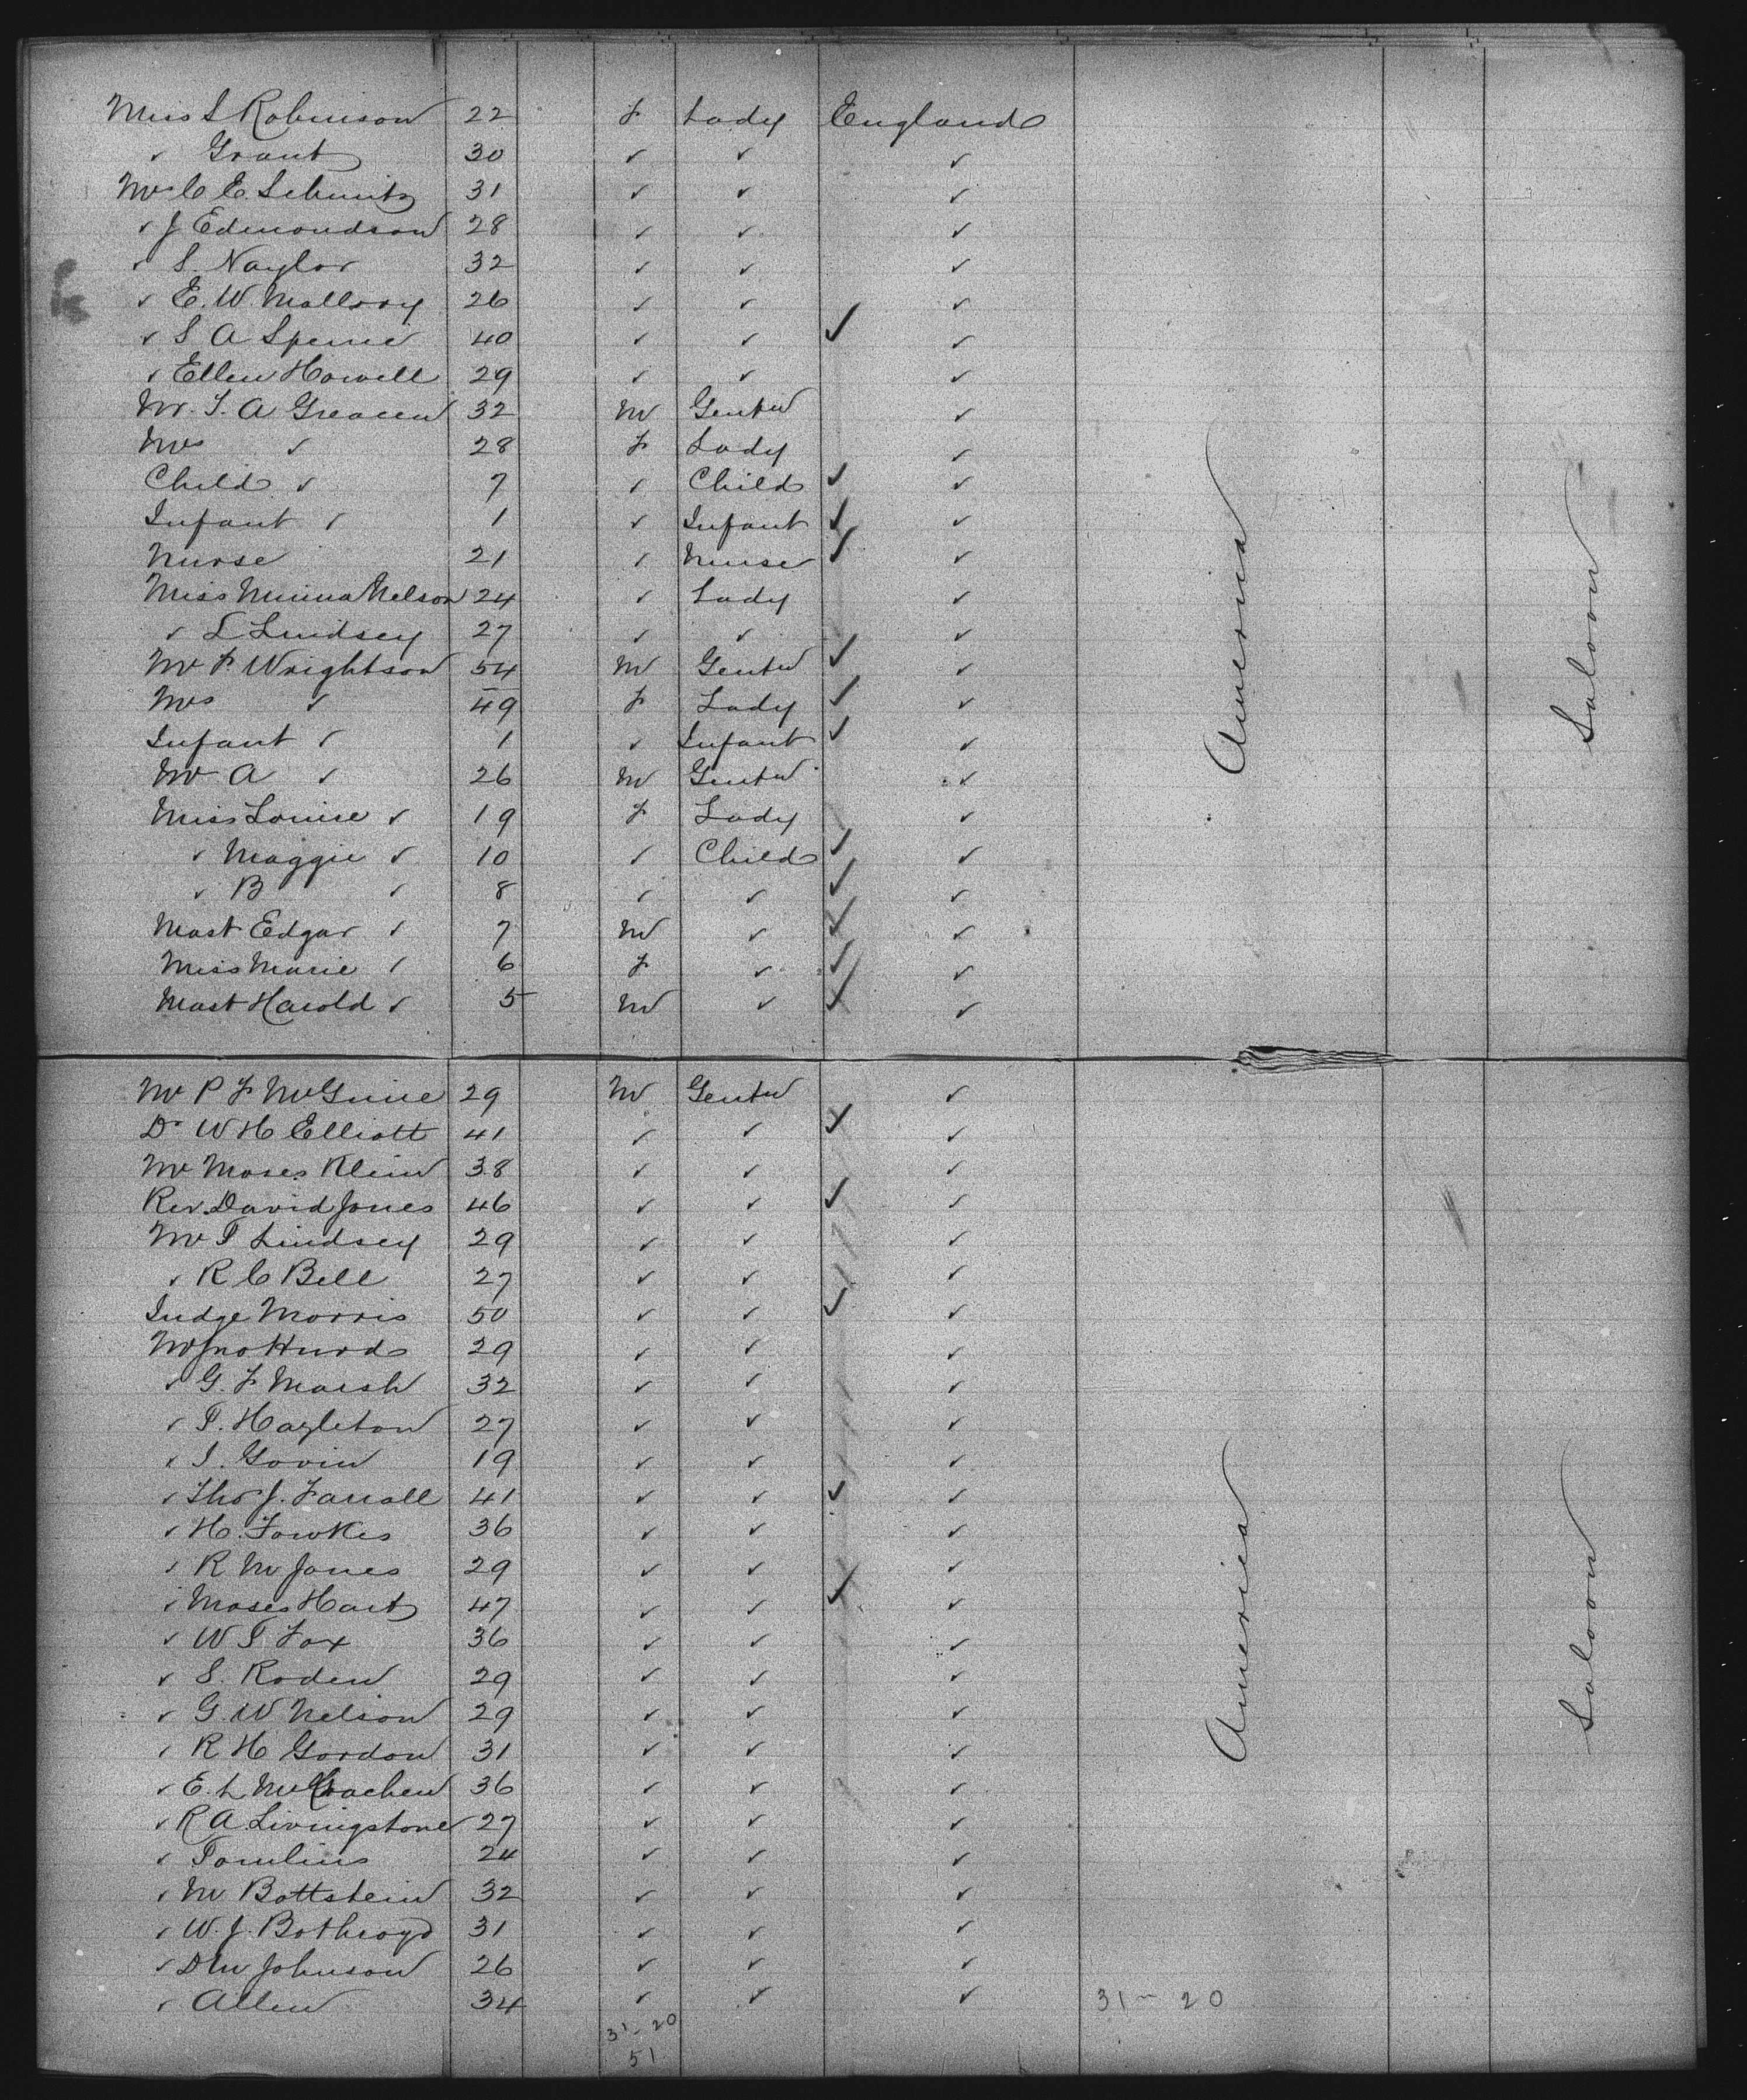 Miss S Robinson 22 F Lady England
✓ Grant 30 ✓ ✓ ✓
Mrs C E Schmitz 31 ✓ ✓ ✓
✓ J Edmondson 28 ✓ ✓ ✓
✓ S. Naylor 32 ✓ ✓ ✓
✓ E. W Mallory 26 ✓ ✓ ✓
✓ S A Spence 40 ✓ ✓ ✓ ✓
✓ Ellen Howell 29 ✓ ✓ ✓
Mr. T. A Greacen 32 M Gentn ✓
Mrs ✓ 28 F Lady ✓
Child ✓ 7 ✓ Child ✓ ✓
Infant ✓ 1 ✓ Infant ✓ ✓
Nurse 21 ✓ Nurse ✓ ✓
Miss Minna Nelson 24 ✓ Lady ✓
✓ L Lindsey 27 ✓ ✓ ✓
Mr F. Wrightson 54 M Gentn ✓ ✓
Mrs ✓ 49 F Lady ✓ ✓
Infant ✓ 1 ✓ Infant ✓ ✓
Mr A ✓ 26 M Gentn ✓
Miss Louise ✓ 19 F Lady ✓
✓ Maggie ✓ 10 ✓ Child ✓ ✓
✓ B ✓ 8 ✓ ✓ ✓ ✓
Mast Edgar ✓ 7 M ✓ ✓ ✓
Miss Marie ✓ 6 F ✓ ✓ ✓
Mast Harold ✓ 5 M ✓ ✓ ✓
America
Saloon
Mr P F McGuire 29 M Gentn ✓
Dr W H Elliott 41 ✓ ✓ ✓ ✓
Mr Moses Klein 38 ✓ ✓ ✓
Rev. David Jones 46 ✓ ✓ ✓ ✓
Mr T Lindsey 29 ✓ ✓ ✓
✓ R C Bell 27 ✓ ✓ ✓ ✓
Judge Morris 50 ✓ ✓ ✓ ✓
Mr Jno Hurd 29 ✓ ✓ ✓
✓ G. F Marsh 32 ✓ ✓ ✓
✓ T. Hazleton 27 ✓ ✓ ✓
✓ J. Govin 19 ✓ ✓ ✓
✓ Thos J. Farrall 41 ✓ ✓ ✓ ✓
✓ H. Fowkes 36 ✓ ✓ ✓
✓ R M Jones 29 ✓ ✓ ✓
✓ Moses Hart 47 ✓ ✓ ✓ ✓
✓ W T Fox 36 ✓ ✓ ✓
✓ S. Roden 29 ✓ ✓ ✓
✓ G. W Nelson 29 ✓ ✓ ✓
✓ R H Gordon 31 ✓ ✓ ✓
✓ E. L McCrachen 36 ✓ ✓ ✓
✓ R A Livingstone 27 ✓ ✓ ✓
✓ Tomlins 24 ✓ ✓ ✓
✓ M Bottstein 32 ✓ ✓ ✓
✓ W. J. Bothroyd 31 ✓ ✓ ✓
✓ D M Johnson 26 ✓ ✓ ✓
✓ Allen 34 ✓ ✓ ✓ 31 - 20
America
Saloon
31 - 20
51